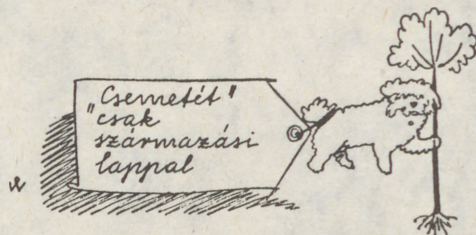 „Csemetét"
csak
származási
lappal